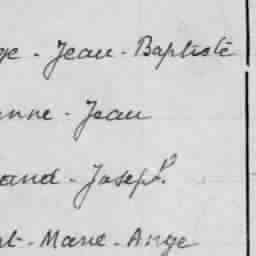 ge - Jean - Baptiste
anne - Jean
and - Joseph.
at - Marie - Ange